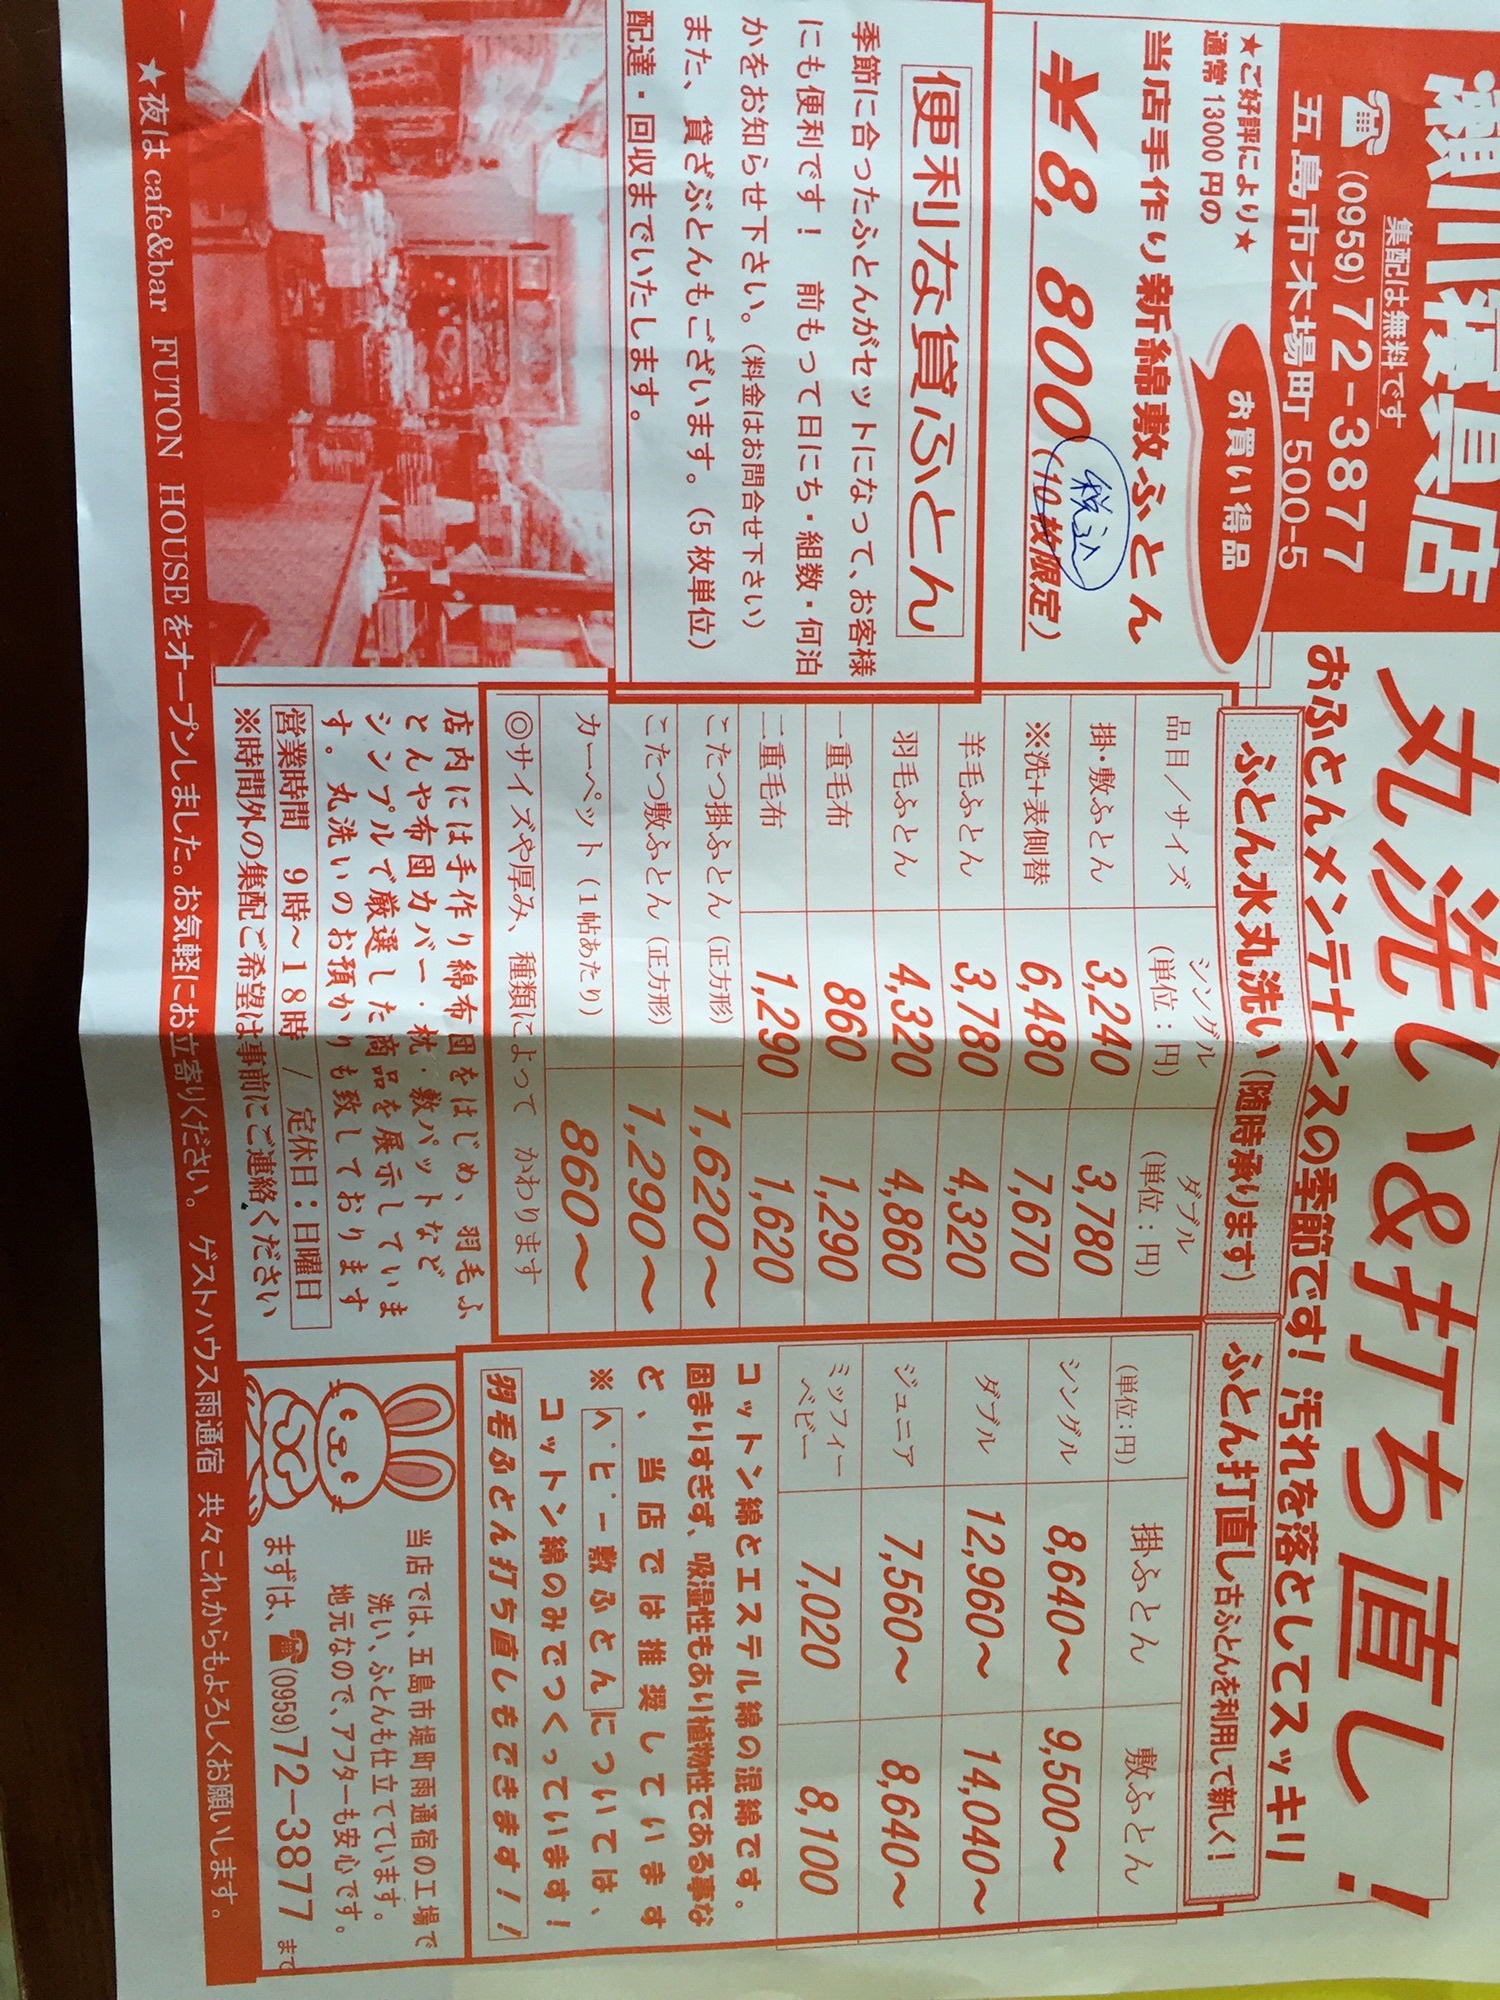 丸洗い&打ち直し!
おふとんメンテナンスの季節です!汚れを落としてスッキリ
寝具店
集配は無料です
☎(0959)72-3877
五島市木場町 500-5
★ご好評により★
通常 13000 円の
お買い得品
当店手作り新綿敷ふとん
税込
¥8,800(10枚限定)
便利な貸ふとん
季節に合ったふとんがセットになって、お客様
にも便利です! 前もって日にち・組数・何泊
かをお知らせ下さい。(料金はお問合せ下さい)
また、貸ざぶとんもございます。(5枚単位)
配達・回収までいたします。
ふとん水丸洗い(随時承ります)
品目/サイズ シングル(単位:円) ダブル(単位:円)
掛・敷ふとん 3,240 3,780
※洗+表側替 6,480 7,670
羊毛ふとん 3,780 4,320
羽毛ふとん 4,320 4,860
一重毛布 860 1,290
二重毛布 1,290 1,620
こたつ掛ふとん(正方形) 1,620〜
こたつ敷ふとん(正方形) 1,290〜
カーペット(1帖あたり) 860〜
◎サイズや厚み、種類によって かわります
ふとん打直し古ふとんを利用して新しく!
(単位:円) 掛ふとん 敷ふとん
シングル 8,640〜 9,500〜
ダブル 12,960〜 14,040〜
ジュニア 7,560〜 8,640〜
ミッフィーベビー 7,020 8,100
コットン綿とエステル綿の混綿です。
固まりすぎず、吸湿性もあり植物性である事な
ど、当店では推奨しています
※ベビー敷ふとんについては、
コットン綿のみでつくっています!
羽毛ふとん打ち直しもできます!!
店内には手作り綿布団をはじめ、羽毛ふ
とんや布団カバー・枕・敷パットなど
シンプルで厳選した商品を展示していま
す。丸洗いのお預かりも致しております
営業時間 9時〜18時 / 定休日:日曜日
※時間外の集配ご希望は事前にご連絡ください
当店では、五島市堤町雨通宿の工場で
洗い、ふとんも仕立てています。
地元なので、アフターも安心です。
まずは、☎(0959)72-3877 まで
★夜は cafe&bar FUTON HOUSE をオープンしました。お気軽にお立寄りください。 ゲストハウス雨通宿 共々これからもよろしくお願いします。